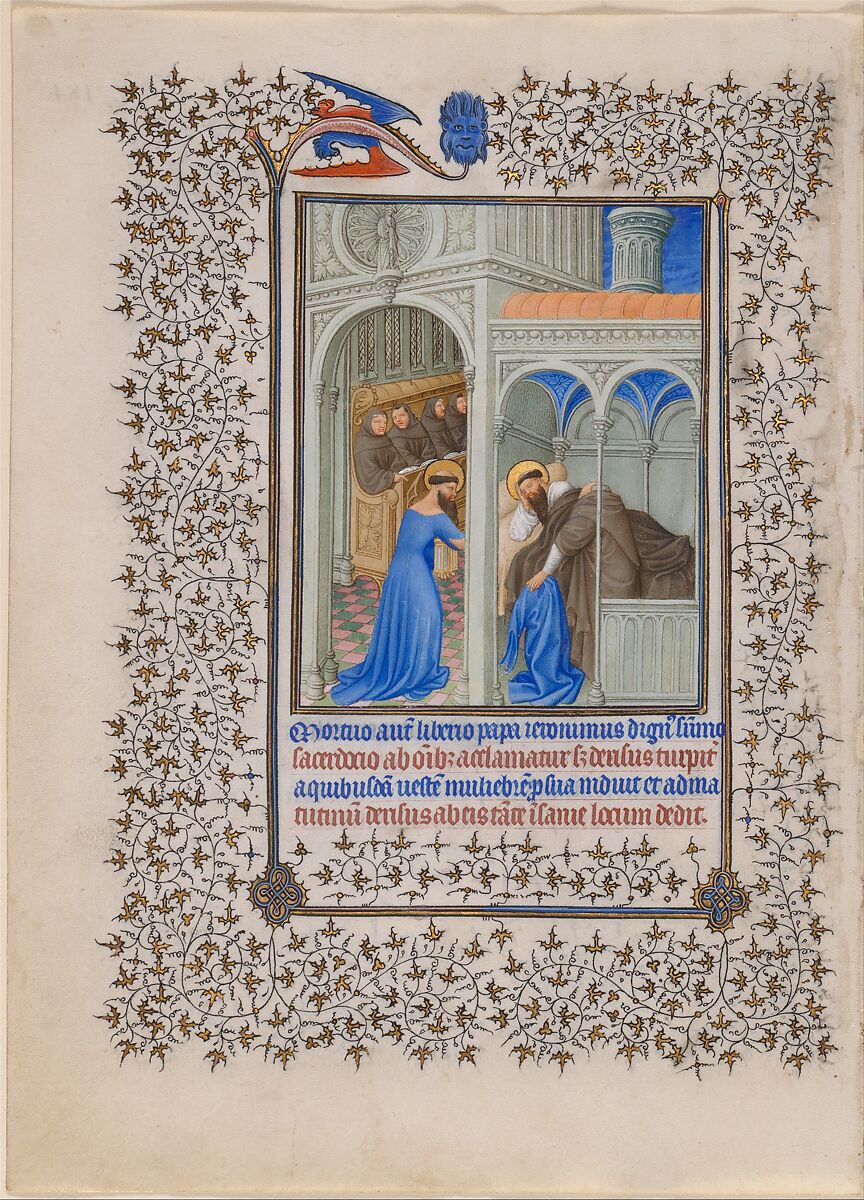 Mortuo aut̄ liberio papa ieronimus dign᷒ sūmo
sacerdocio ab oībꝫ acclamatur sꝫ derisus turpit̄
a quibusdā uestē muliebrē ꝓ sua induit et ad ma
tutinū derisus ab eis tāte īsanie locum dedit.